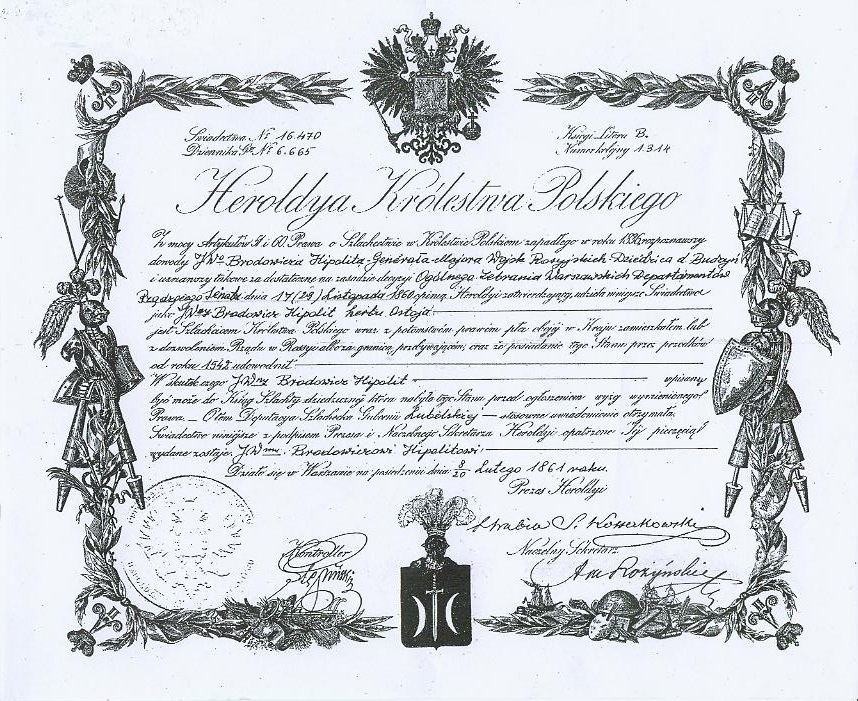 Świadectwa Nr 16.470
Dziennika Nr 6.665
Księgi Litera B.
Numer kolejny 1.314
Heroldya Królestwa Polskiego
Z mocy Artykułów i 60. Prawa o Szlachectwie w Królestwie Polskiem zapadłego w roku 1836, rozpoznawszy
dowody JWo Brodowicza Hipolita-Generała-Majora Wojsk Rosyjskich Dziedzica d.
i uznawszy takowe za dostateczne na zasadzie decyzyi Ogólnego Zebrania Warszawskich Departamentów
Rządzącego Senatu dnia 17/(29) Listopada 1860 opinią Heroldyi zatwierdzającej, udziela niniejsze Świadectwo
jako JWny Brodowicz Hipolit herbu Ostoja
jest Szlachcicem Królestwa Polskiego wraz z potomstwem prawem płci obojej w Kraju zamieszkałem lub
z dozwoleniem Rządu w Rossyi albo za granicą przebywającem, oraz że posiadanie tego Stanu przez przodków
od roku 1542 udowodnił
W skutek czego JWny Brodowicz Hipolit wpisany
być może do Księgi Szlachty dziedzicznej która nabyła tego Stanu przed ogłoszeniem wyżej wymienionego
Prawa. – O tem Deputacya Szlachecka Gubernii Lubelskiej – stosowne uwiadomienie otrzymała.
Świadectwo niniejsze z podpisem Prezesa i Naczelnego Sekretarza Heroldyi opatrzone Jej pieczęcią
wydane zostaje JWmu Brodowiczowi Hipolitowi
Działo się w Warszawie na posiedzeniu dnia 8/20 Lutego 1861 roku.
Prezes Heroldyi
Hrabia S. Kossakowski
Kontroller
Naczelny Sekretarz